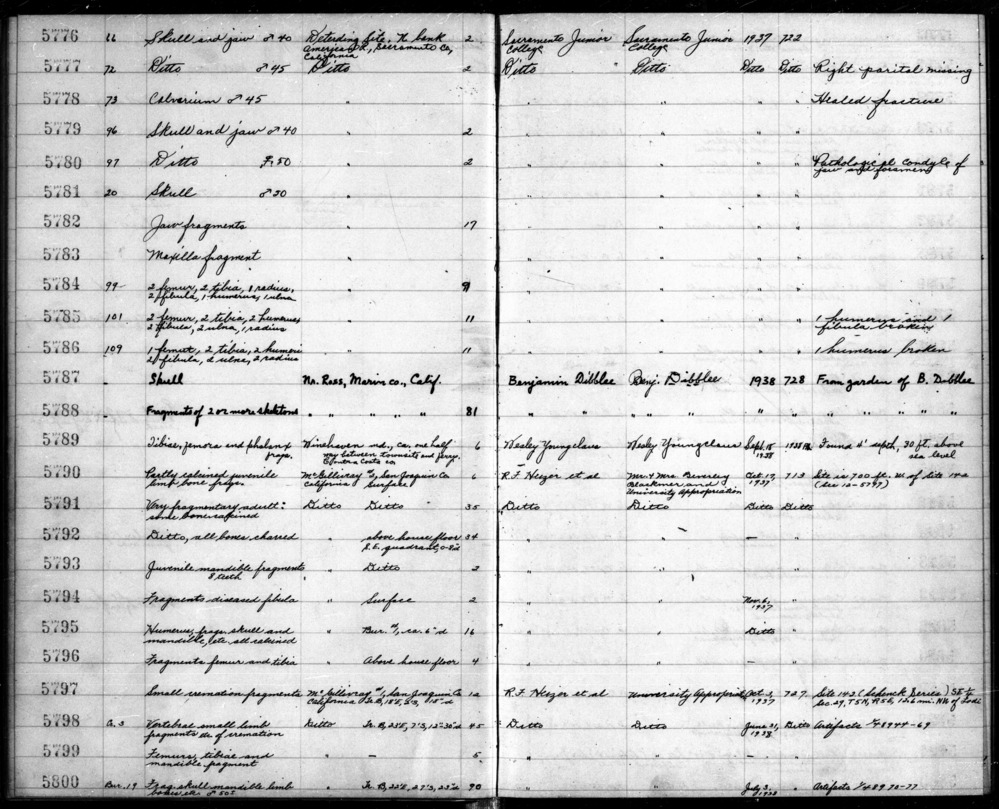 5776 66 Skull and jaw ♂ 40 Detuding Site, N. bank 2 Sacramento Junior Sacramento Junior 1937 722
American R., Sacramento Co, College College
California
5777 72 Ditto ♂ 45 Ditto 2 Ditto Ditto Ditto Ditto Right parital missing
5778 73 Calvarium ♂ 45 " " " " " Healed fracture
5779 96 Skull and jaw ♂ 40 " 2 " " " "
5780 97 Ditto F, 50 " 2 " " " " Pathological condyle of
jaw and foramen
5781 20 Skull ♂ 30 " " " " "
5782 Jaw fragments " 17 " " " "
5783 Maxilla fragment " " " " "
5784 99 2 femur, 2 tibia, 1 radius, " 9 " " " "
2 fibula, 1 humerus, 1 ulna
5785 101 2 femur, 2 tibia, 2 humerus " 11 " " " " 1 humerus and 1
2 fibula, 2 ulna, 1 radius fibula broken
5786 109 1 femur, 2 tibia, 2 humeri " 11 " " " " 1 humerus broken
2 fibula, 2 ulna, 2 radius
5787 - Skull Nr. Ross, Marin co., Calif. Benjamin Dibblee Benj. Dibblee 1938 728 From garden of B. Dibblee
5788 - Fragments of 2 or more skeletons " " " " 81 " " " " " " " " " " "
5789 Tibiae, femora and phalanx Winehaven ind., ca. one half 6 Wesley Youngclaus Wesley Youngclaus Sept. 15 Found 4' depth, 30 ft. above
frags. way between townsite and ferry, 1938 sea level
Contra Costa co.
5790 Partly calcined juvenile McGillivray #1, San Joaquin Co 6 R.F. Heizer et al Mr. & Mrs. Beverley Oct. 17, 713 Site is 700 ft. W. of site
limb bone frags California Surface Blackmer and 1937 (see 12-5797)
University Appropriation
5791 Very fragmentary adult: Ditto Ditto 35 Ditto Ditto Ditto Ditto
some bones calcined
5792 Ditto, all bones charred " above house floor 34 " " - "
S.E. quadrant, 0-8"d
5793 Juvenile mandible fragments " Ditto 2 " " "
8 teeth
5794 Fragments diseased fibula " Surface 2 " " Nov. 6, "
1937
5795 Humerus, frags. skull and " Bur. #1, ca. 6" d 16 " " Ditto "
mandible, etc. all calcined
5796 Fragments femur and tibia " Above house floor 4 " " - "
5797 Small cremation fragments McGillivray #1, San Joaquin Co 12 R.F. Heizer et al University Appropriation Oct. 3, 727 Site 142 (Schenck Series) SE ¼
California, Tr. B, 1937 Sec. 29, T5N, R5E, 12.6 mi. NW of Lodi
5798 Vertebrae small limb Ditto Tr. B, 45 Ditto Ditto June 21, Ditto Artifacts 1/48944-69
fragments etc of cremation 1938
5799 Femurs, tibiae and " - 5 " " "
mandible fragment
5800 Bur. 19 Frag. skull mandible limb " Tr. B, 90 " " July 3, " Artifacts 1/48970-77
bones etc. ♂ 50? 1938